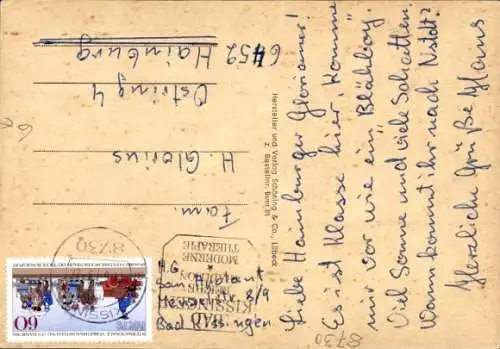 Liebe Hainburger Gloriauer!
Es ist Klasse hier, komme
mir vor wie ein Playboy.
Viel Sonne und viele Schatten.
Wann kommt ihr nach
Herzliche Grüße Klaus
Hersteller und Verlag Schöning & Co., Lübeck
z. Bestellnr. Bunt
Fam.
H. Glorius
Ostring 4
6452 Hainburg
8730
BAD
KISSINGEN
MODERNE
THERAPIE
H.G.
San
8/9
Bad Kissingen
60
8730